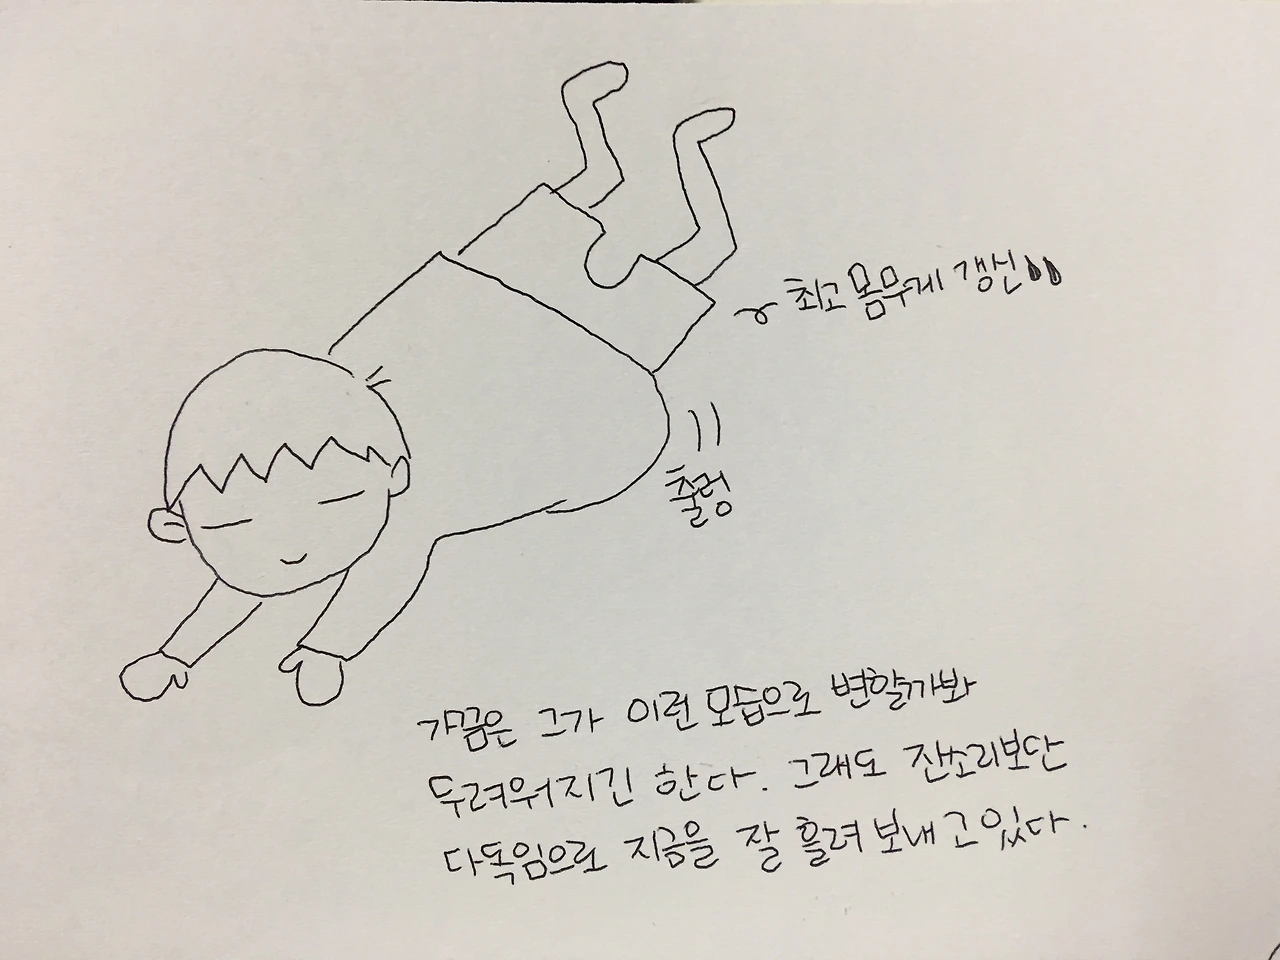 최고 몸무게 갱신
출렁
가끔은 그가 이런 모습으로 변할까봐
두려워지긴 한다. 그래도 잔소리보단
다독임으로 지금을 잘 흘려보내고있다.